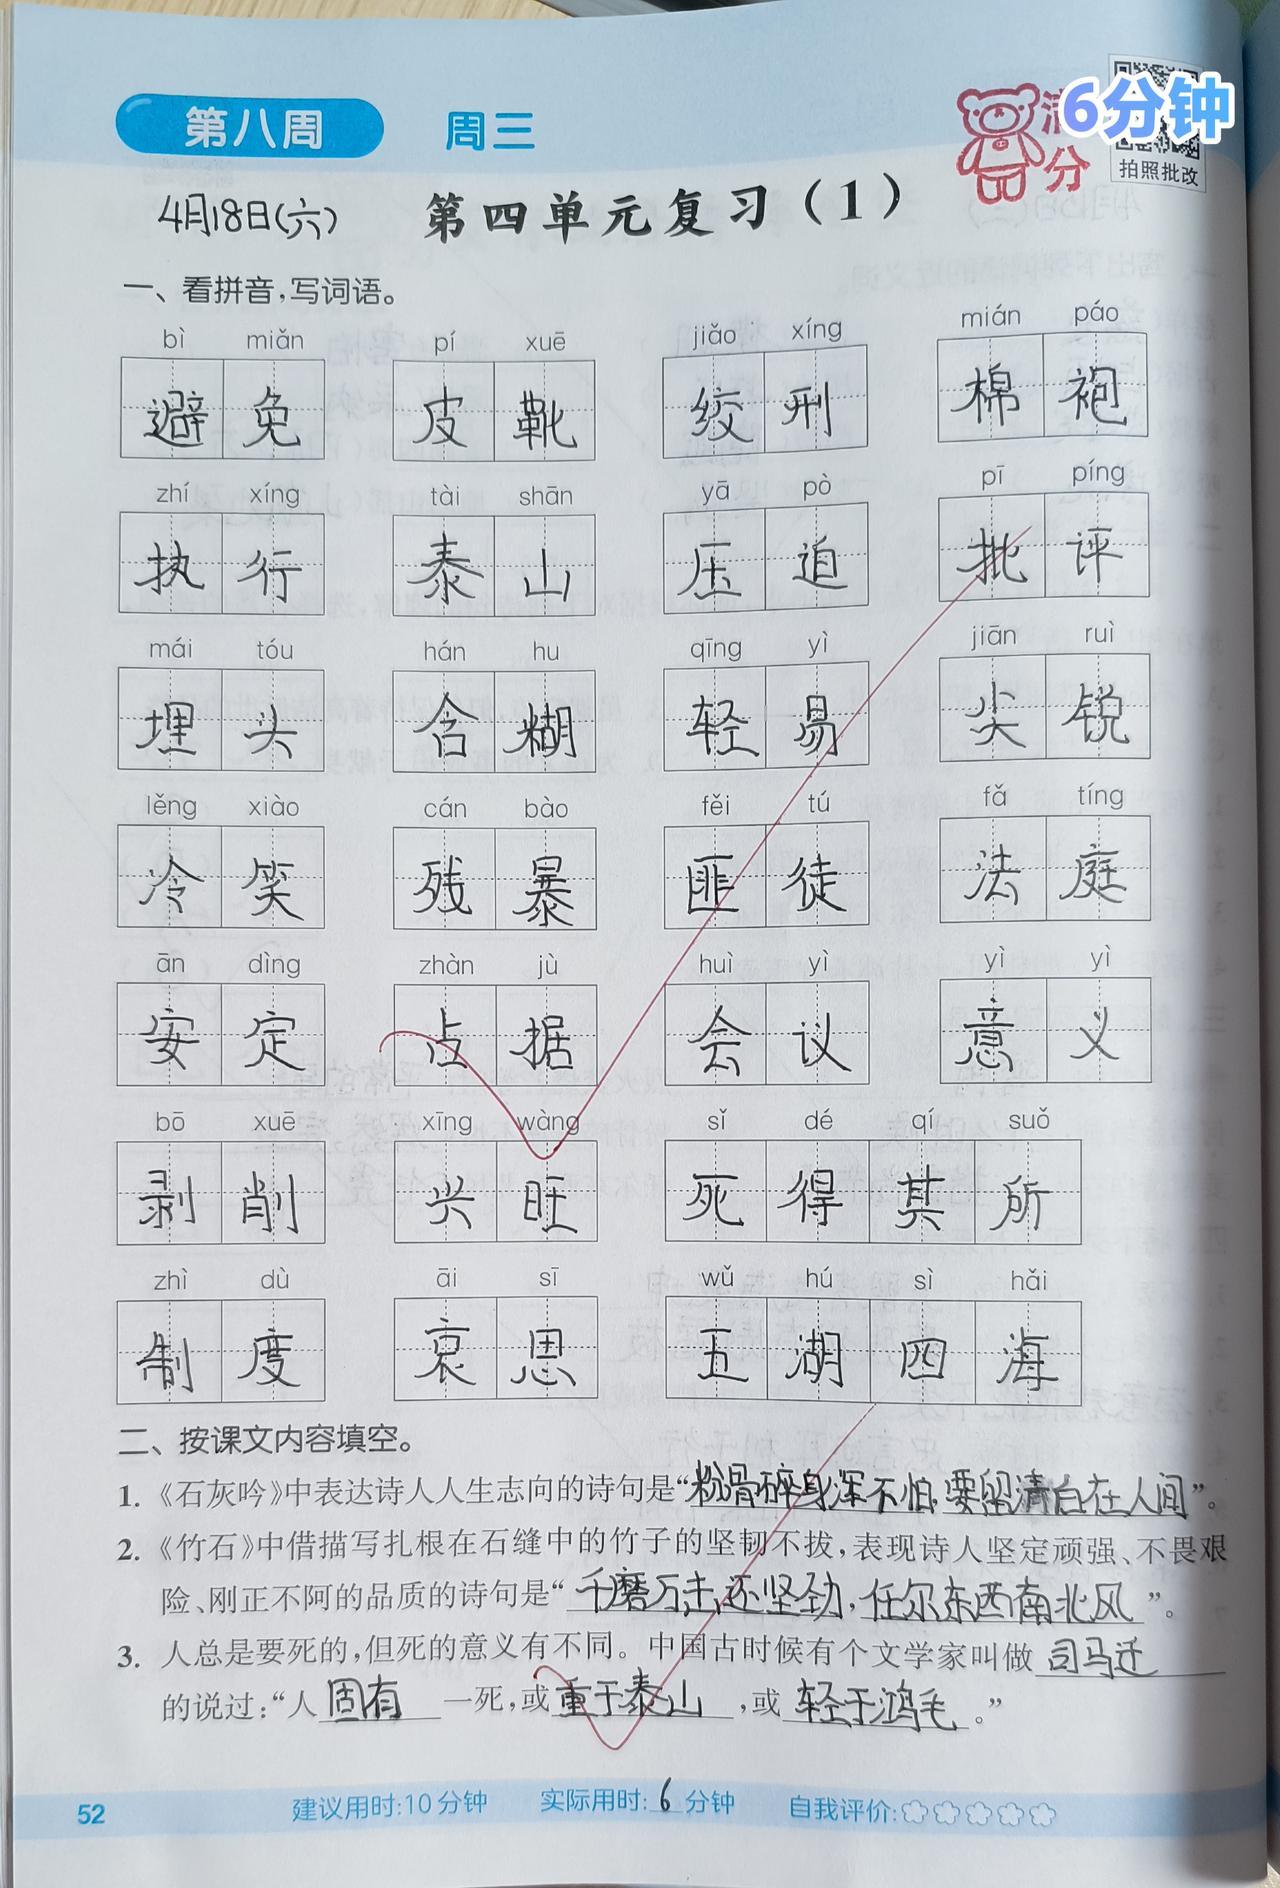 满分
6分钟
拍照批改
第八周 周三
4月18日(六) 第四单元复习(1)
一、看拼音,写词语。
bì miǎn pí xuē jiǎo xíng mián páo
避免 皮靴 绞刑 棉袍
zhí xíng tài shān yā pò pī píng
执行 泰山 压迫 批评
mái tóu hán hu qīng yì jiān ruì
埋头 含糊 轻易 尖锐
lěng xiào cán bào fěi tú fǎ tíng
冷笑 残暴 匪徒 法庭
ān dìng zhàn jù huì yì yì yì
安定 占据 会议 意义
bō xuē xīng wàng sǐ dé qí suǒ
剥削 兴旺 死得其所
zhì dù āi sī wǔ hú sì hǎi
制度 哀思 五湖四海
二、按课文内容填空。
1.《石灰吟》中表达诗人人生志向的诗句是“粉骨碎身浑不怕,要留清白在人间”。
2.《竹石》中借描写扎根在石缝中的竹子的坚韧不拔,表现诗人坚定顽强、不畏艰
险、刚正不阿的品质的诗句是“千磨万击还坚劲,任尔东西南北风”。
3. 人总是要死的,但死的意义有不同。中国古时候有个文学家叫做司马迁
的说过:“人固有一死,或重于泰山,或轻于鸿毛。”
52 建议用时:10分钟 实际用时:6分钟 自我评价: